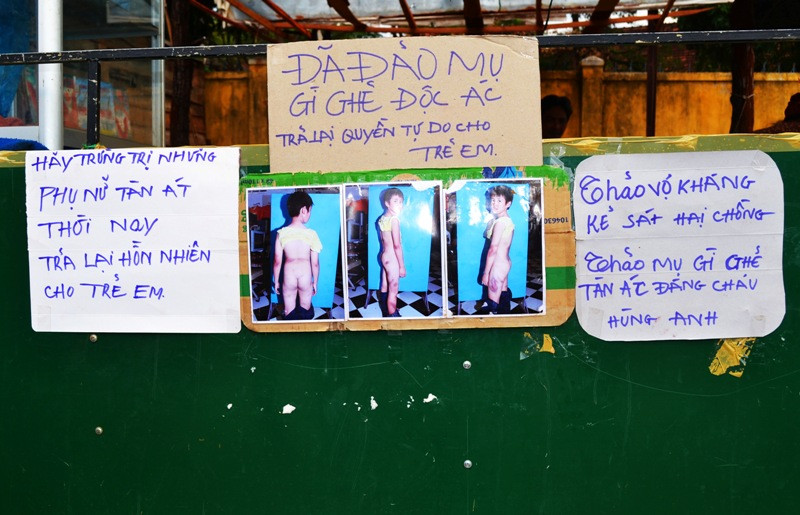 ĐÃ ĐẢO MỤ
GÌ GHẺ ĐỘC ÁC
TRẢ LẠI QUYỀN TỰ DO CHO
TRẺ EM.
HÃY TRỪNG TRỊ NHỮNG
PHỤ NỮ TÀN ÁT
THỜI NAY
TRẢ LẠI HỒN NHIÊN
CHO TRẺ EM.
Thảo VỢ KHÁNG
KẺ SÁT HẠI CHỒNG
Thảo MỤ GÌ GHẺ
TÀN ÁC ĐÁNG CHÁU
HÙNG ANH